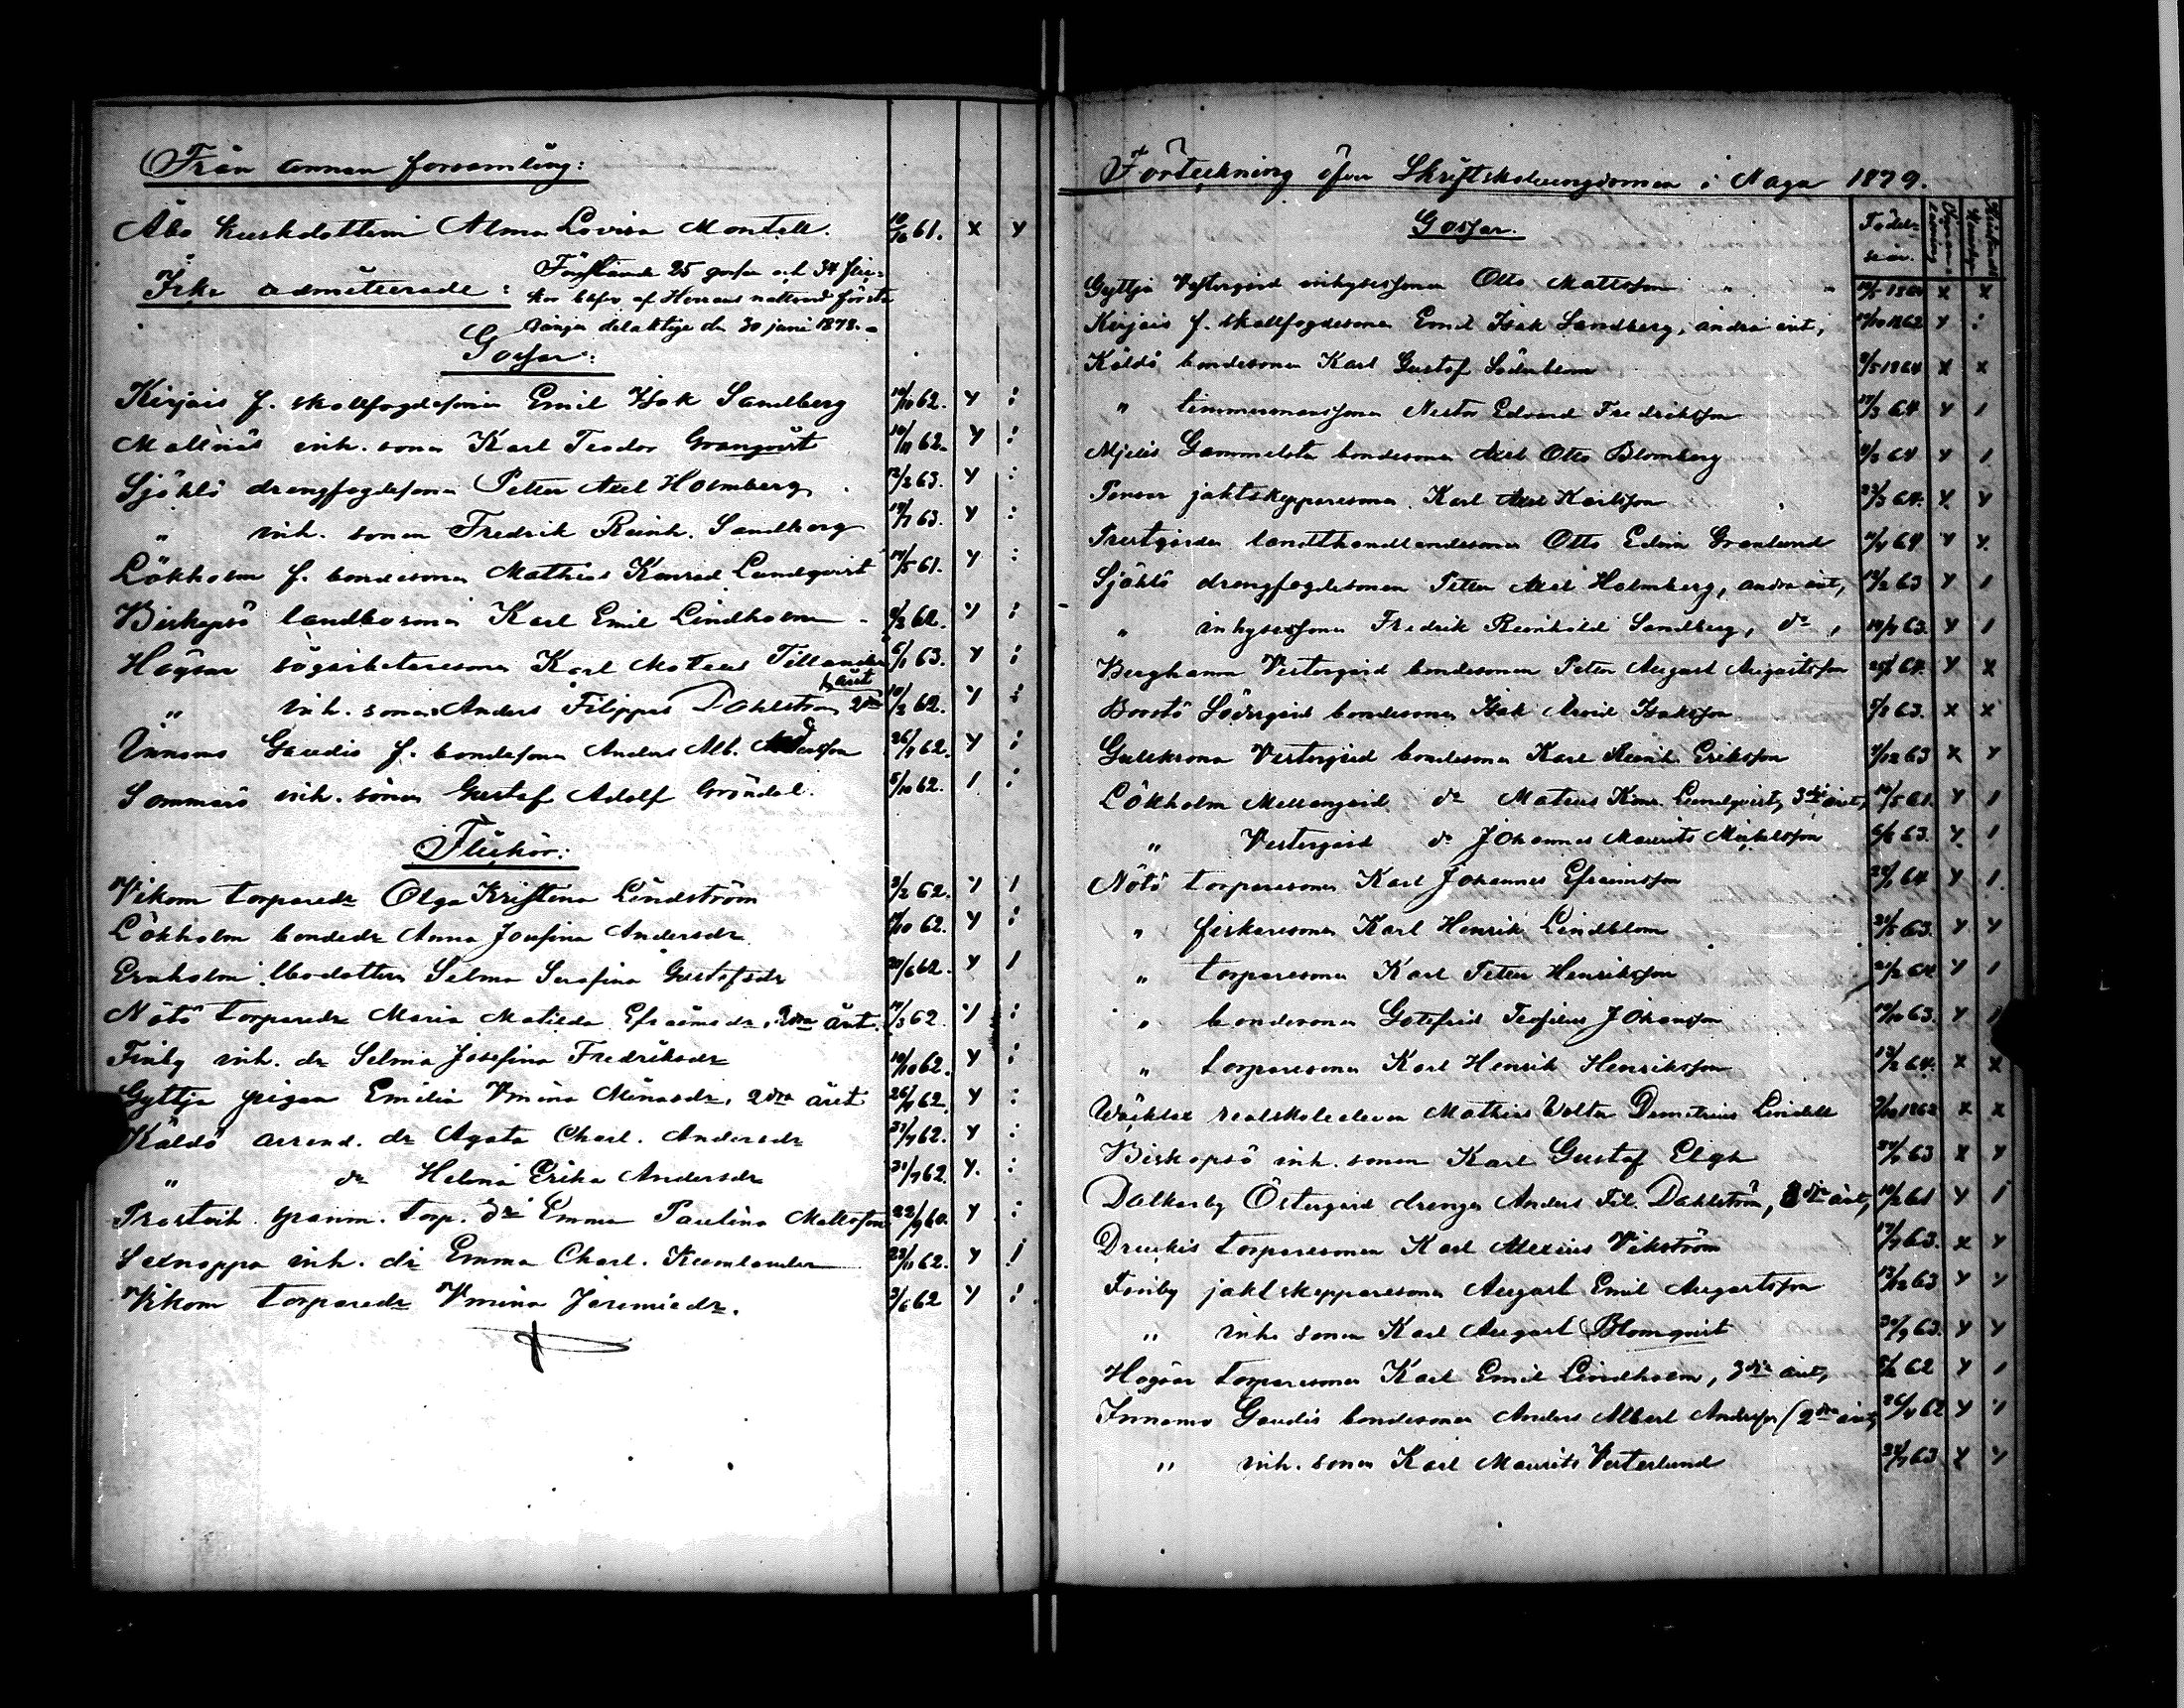 Från annan församling:
Åbo kuskdottern Alma Lovisa Montell. 10/10 61. x y
Förestående 25 gossar och 34 flic-
Icke admitterade: kor blefvo af Herrans nattvard första
gången delaktige den 30 juni 1878.
Gossar:
Kirjais f. skallfogdesonen Emil Isak Sandberg 62. y :
Mallnäs inh. sonen Karl Teodor Granqvist 62. y :
Sjöklö drengfogdesonen Petter Axel Holmberg 12/2 63. y :
" inh. sonen Fredrik Reinh. Sandberg 63. y :
Lökholm f. bondesonen Mathias Konrad Lundqvist 61. y :
Biskopsö landbosonen Karl Emil Lindholm 62. y :
Högsar sågarbetaresonen Karl Mateus Tillander 6/1 63. y :
" inh. sonen Anders Filippus Dahlström 2dra året 10/2 62. y :
Innamo Gaudis f. bondesonen Anders Alb. Andersson 62. y :
Sommarö inh. sonen Gustaf Adolf Gröndal. 5/10 62. 1 :
Flickor:
Vikom torparedr Olga Kristina Lindström 3/2 62. y 1
Lökholm bondedr Anna Josefina Andersdr 62. y :
Ernholm Bodottern Selma Serafina Gustafsdr 62. y 1
Nötö torparedr Maria Matilda Efraimsdr, 2dra året. 62 y :
Finby inh. dr Selma Josefina Fredriksdr 10/10 62. y :
Gyttja pigan Emilia Vmina Minasdr, 2dra året 62. y :
Käldö arrend. dr Agata Charl. Andersdr 62. y :
" dr Helena Erika Andersdr 62. y. :
Prostvik torp. dr Emma Paulina Mattsson 60. y :
Saxnappa inh. dr Emma Charl. Kumlander 62. y 1
Vikom torparedr Vmina Jeremiedr. 3/6 62 y :
Förteckning öfver Skriftskoleungdomen i Nagu 1879.
Gossar. Födel-
seår.
Gyttja Vestergård inhysessonen Otto Mattsson x x
Kirjais f. skallfogdesonen Emil Isak Sandberg, andra året, 1862 y :
Käldö bondesonen Karl Gustaf Söderblom 1864 x x
" timmermanssonen Nestor Edvard Fredriksson 17/3 64 y 1
Mjelis Gammelsta bondesonen Axel Otto Blomberg 64 y 1
Pensar jaktskepparesonen Karl Axel Karlsson 64. y. y
Prestgården landthandlandesonen Otto Edvin Granlund 64 y y.
Sjöklö drengfogdesonen Petter Axel Holmberg, andra året, 12/2 63 y 1
" inhysessonen Fredrik Reinhold Sandberg, dr, 63. y 1
Berghamn Vestergård bondesonen Peter August Augustsson 64. y x
Borstö Södergård bondesonen Isak Arvid Isaksson 63. x x
Gullkrona Vestergård bondesonen Karl Reinh. Eriksson 63 x y
Lökholm Mellangård dr Mateus Konr. Lundqvist, 3dje året, 61. y 1
" Vestergård dr Johannes Maurits Mickelsson 63. y. 1
Nötö torparesonen Karl Johannes Efraimsson 64 y 1.
" fiskaresonen Karl Henrik Lindblom 63. y y
" torparesonen Karl Petter Henriksson 64 y 1
" bondesonen Gotfrid Teofilus Johansson 63. y 1
" torparesonen Karl Henrik Henriksson 13/2 64. x x
realskoleeleven Mathias Volter Demetrius Lindell 1862 x x
Biskopsö inh. sonen Karl Gustaf Elgh 63 x y
Dalkarby Östergård drengen Anders Fil. Dahlström, 3dje året, 10/2 61 y 1
Druckis torparesonen Karl Alexius Vikström 63. x y
Finby jaktskepparesonen August Emil Augustsson 13/12 63 y y
" inh. sonen Karl August Blomqvist 63. y y
Högsar torparesonen Karl Emil Lindholm, 3dje året, 62 y 1
Innamo Gaudis bondesonen Anders Albert Anderss. (2dra året, 62 y :
" inh. sonen Karl Maurits Vesterlund 63 y y